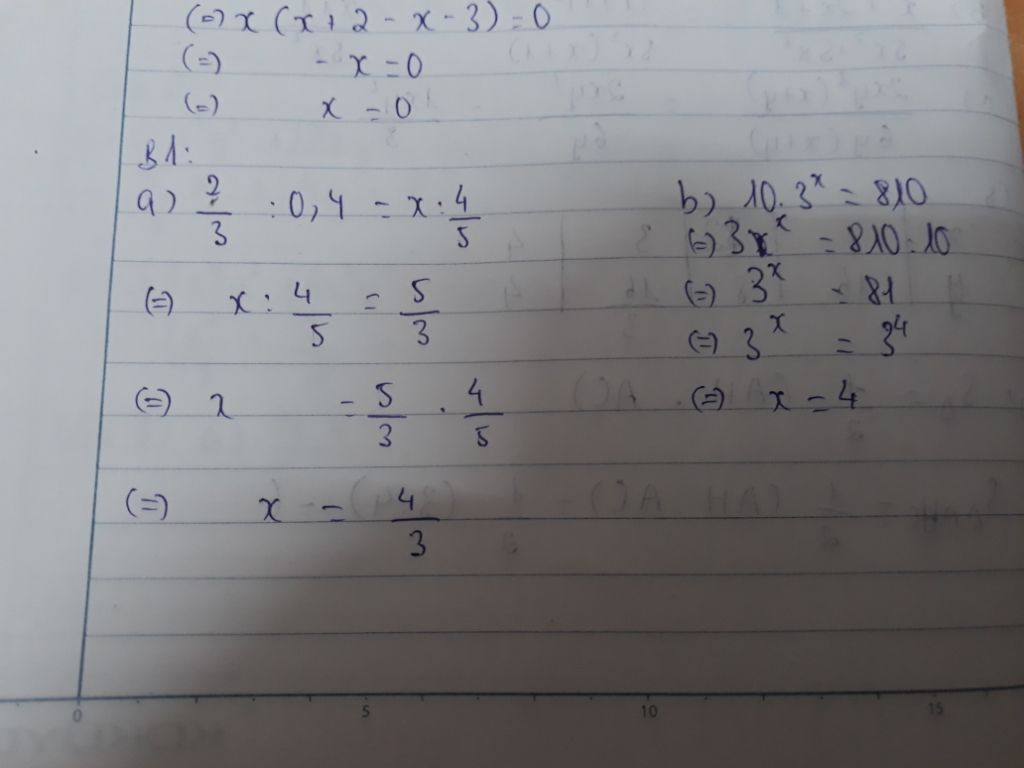 (=) x (x + 2 - x - 3) = 0
(=) - x = 0
(=) x = 0
B1:
a) 2/3 : 0,4 = x : 4/5
(=) x : 4/5 = 5/3
(=) x = 5/3 . 4/5
(=) x = 4/3
b) 10. 3^x = 810
(=) 3^x = 810 : 10
(=) 3^x = 81
(=) 3^x = 3^4
(=) x = 4
0 5 10 15